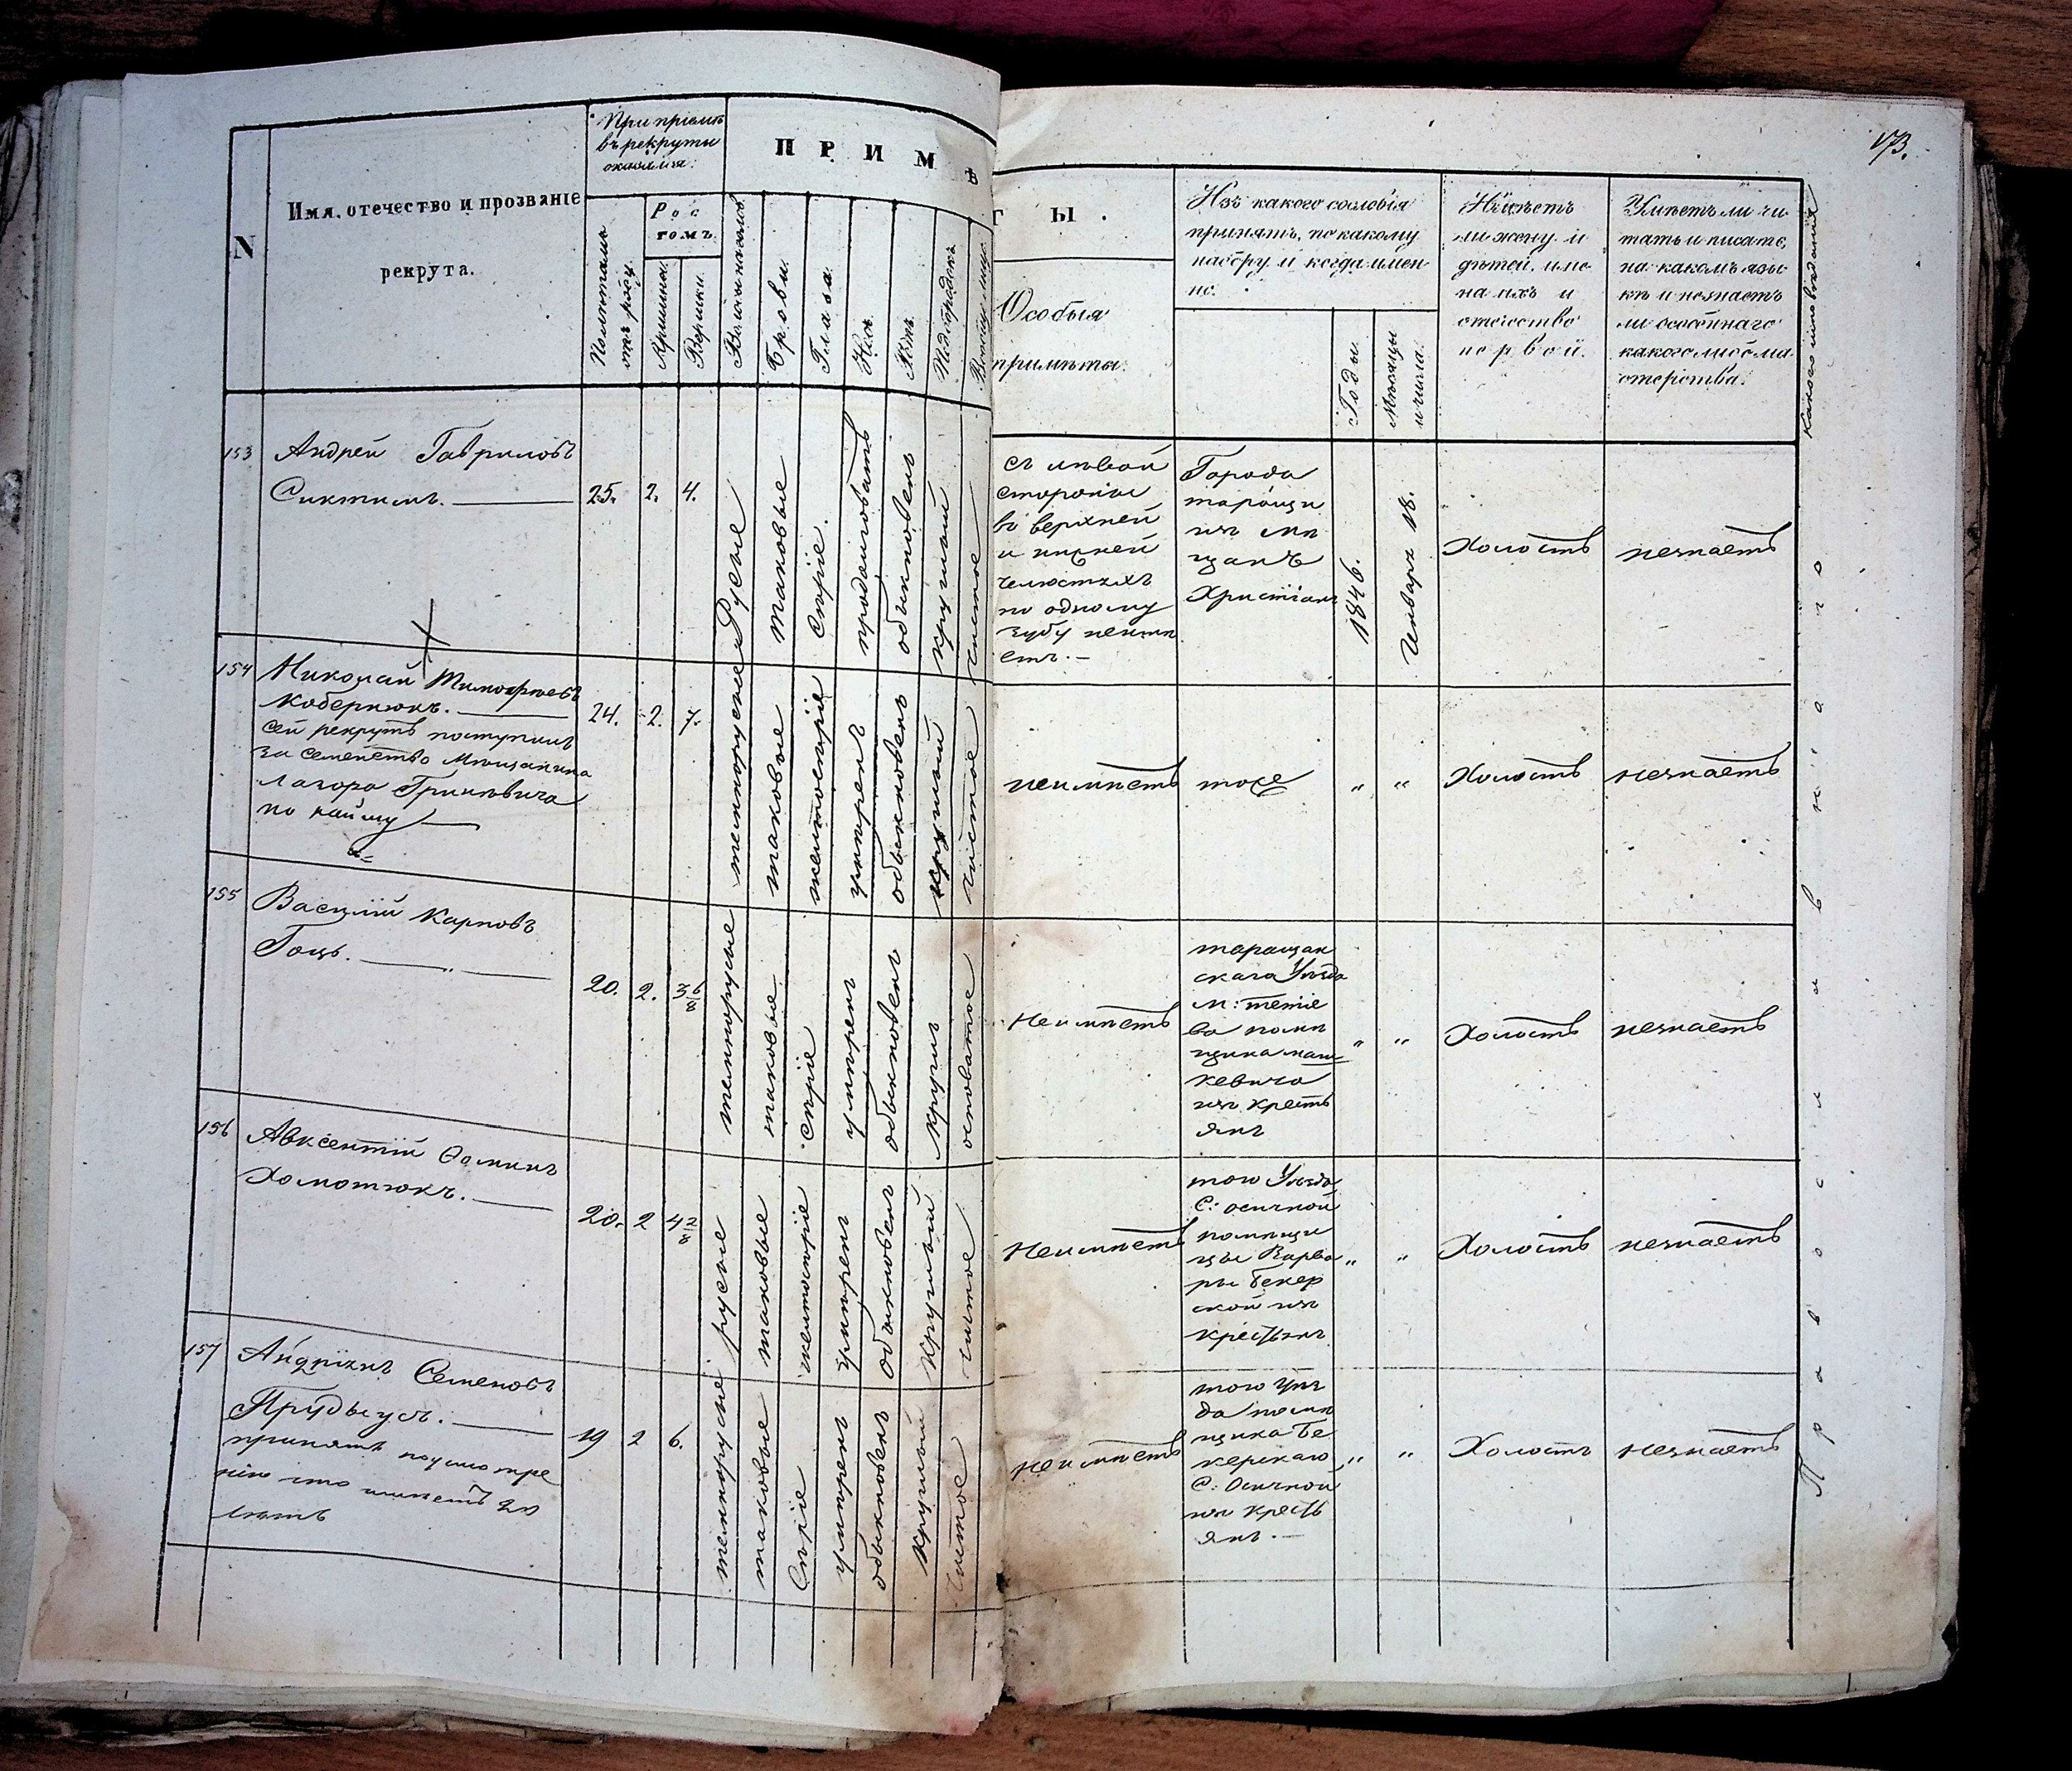 173.
N
Имя, отечество и прозваніе
рекрута.
При пріемѣ
въ рекруты
оказался:
Полнѣтамъ
отъ роду.
Рос
томъ.
Аршины.
Вершки.
ПРИМѢ
Волосы на головѣ
Брови.
Глаза.
Носъ.
Ротъ.
Подбородокъ.
Вообще лице
ТЫ.
Особыя
примѣты.
Изъ какого сословія
принятъ, по какому
набору и когда имен
но.
Годы.
Мѣсяцы
и числа.
Имѣетъ
ли жену и
дѣтей, име
на ихъ и
отечество
первой.
Умѣетъ ли чи
тать и писать,
на какомъ язы
кѣ и незнаетъ
ли особеннаго
какого либо ма
стерства.
Какого исповѣданія
153
Андрей Гавриловъ
Сиктимъ.
25.
2.
4.
Русые
таковые
Сѣріе.
продолговатъ
обыкновенъ
круглый
чистое
съ лѣвой
стороны
въ верхней
и нижней
челюстяхъ
по одному
зубу неимѣ
етъ. —
Города
таращи
изъ мѣ
щанъ
Христіанъ
1846.
Января 18.
Холостъ
незнаетъ
154
Николай Тимофѣевъ
Кобернюкъ.
сей рекрутъ поступилъ
за семейство Мѣщанина
Лазора Гриневича
по найму
24.
2.
7.
темнорусые
таковые
желтосѣріе
умѣренъ
обыкновенъ
круглый
чистое
неимѣетъ
тоже
„
„
Холостъ
незнаетъ
155
Василій Карповъ
Гоць.
20.
2.
3 6/8
темнорусые
таковые
сѣріе
умѣренъ
обыкновенъ
круглъ
осповатое
Неимѣетъ
таращан
скаго Уѣзда
М: тетіе
ва помѣ
щика маш
кевича
изъ кресть
янъ
„
„
Холостъ
незнаетъ
156
Авксентій Ѳоминъ
Хомотюкъ.
20.
2
4 2/8
русые
таковые
желтосѣріе
умѣренъ
обыкновенъ
круглый
чистое
Неимѣетъ
того Уѣзда
С: осичной
помѣщи
цы Варва
ры Бекер
ской изъ
крестьянъ
„
„
Холостъ
незнаетъ
157
Андріянъ Семеновъ
Прудыусъ.
принятъ поусмотре
нію что имѣетъ 20
лѣтъ
19
2
6.
темнорусые
таковые
Сѣріе
умѣренъ
обыкновенъ
круглый
чистое
неимѣетъ
того Уѣз
да помѣ
щика Бе
керскаго
С: Осичной
изъ кресть
янъ. —
„
„
Холостъ
незнаетъ
Православнаго